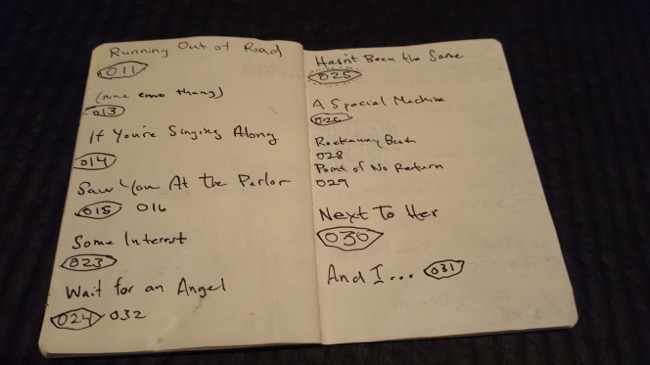 Running Out of Road
011
(some emo thang)
013
If You're Singing Along
014
Saw You At the Parlor
015 016
Some Interest
023
Wait for an Angel
024 032
Hasn't Been the Same
025
A Special Machine
026
Rockaway Beach
028
Point of No Return
029
Next To Her
030
And I... 031